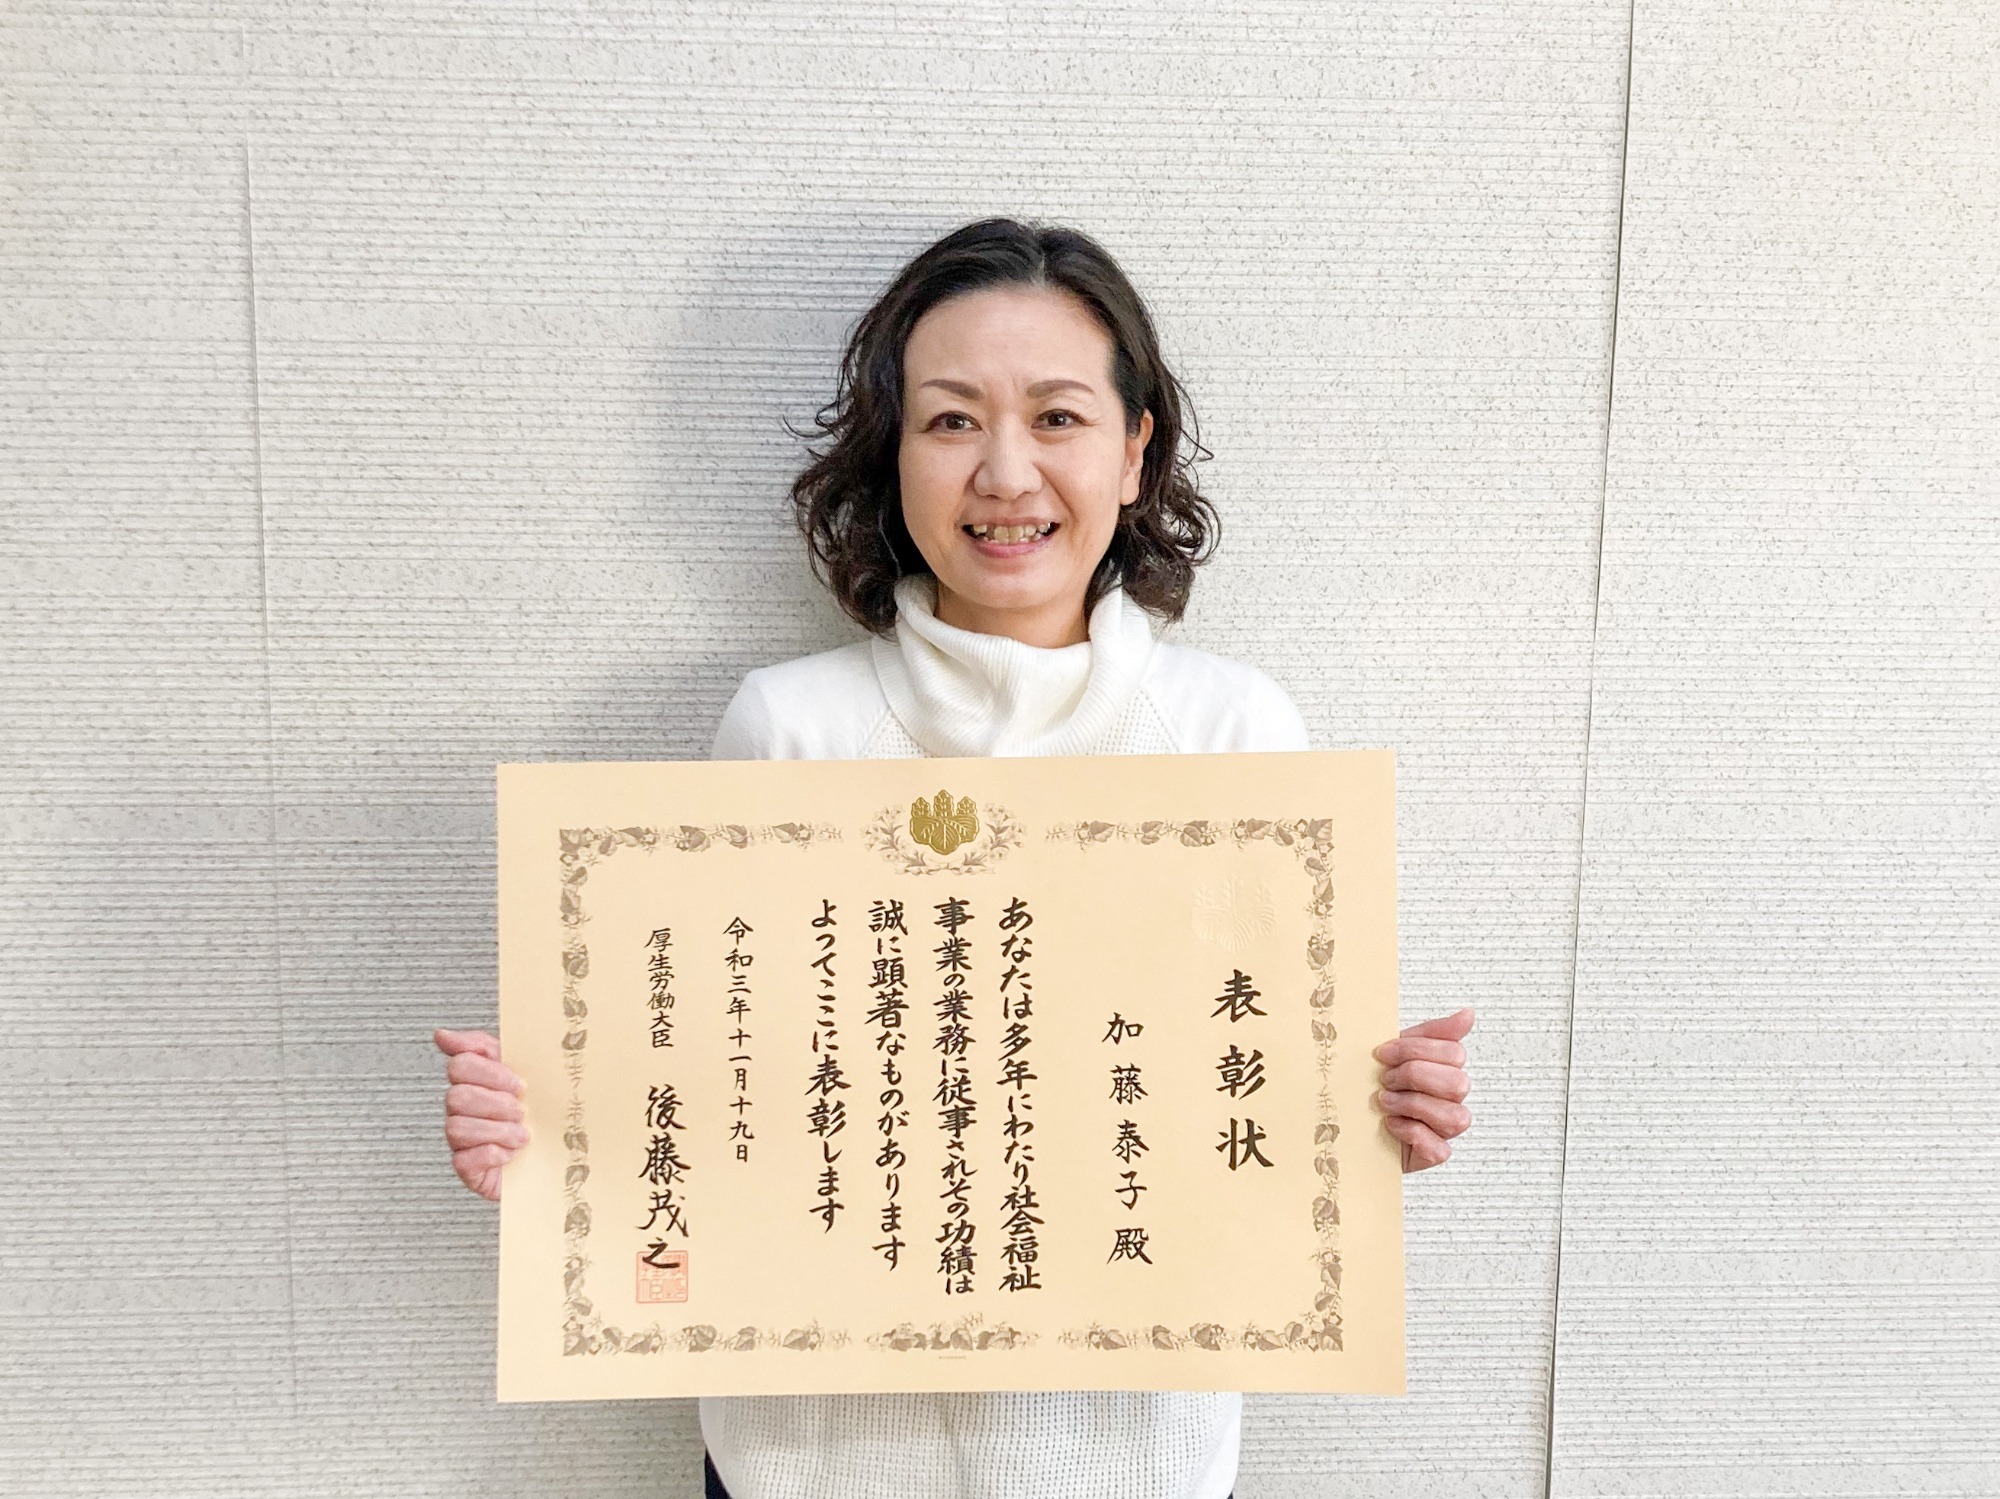 表彰状
加藤泰子殿
あなたは多年にわたり社会福祉
事業の業務に従事されその功績は
誠に顕著なものがあります
よってここに表彰します
令和三年十一月十九日
厚生労働大臣 後藤茂之